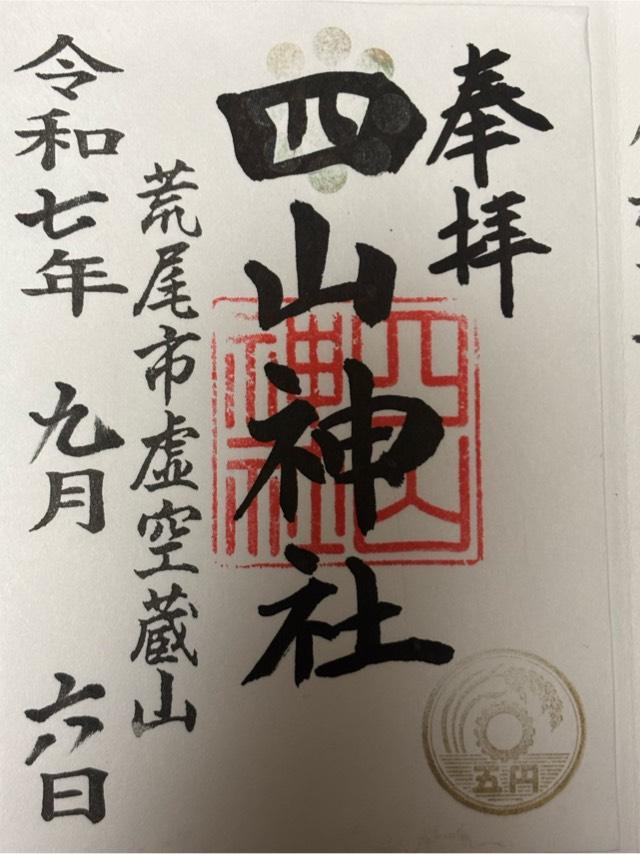 奉拝
四山神社
四山神社
荒尾市虚空蔵山
令和七年 九月 六日
五円